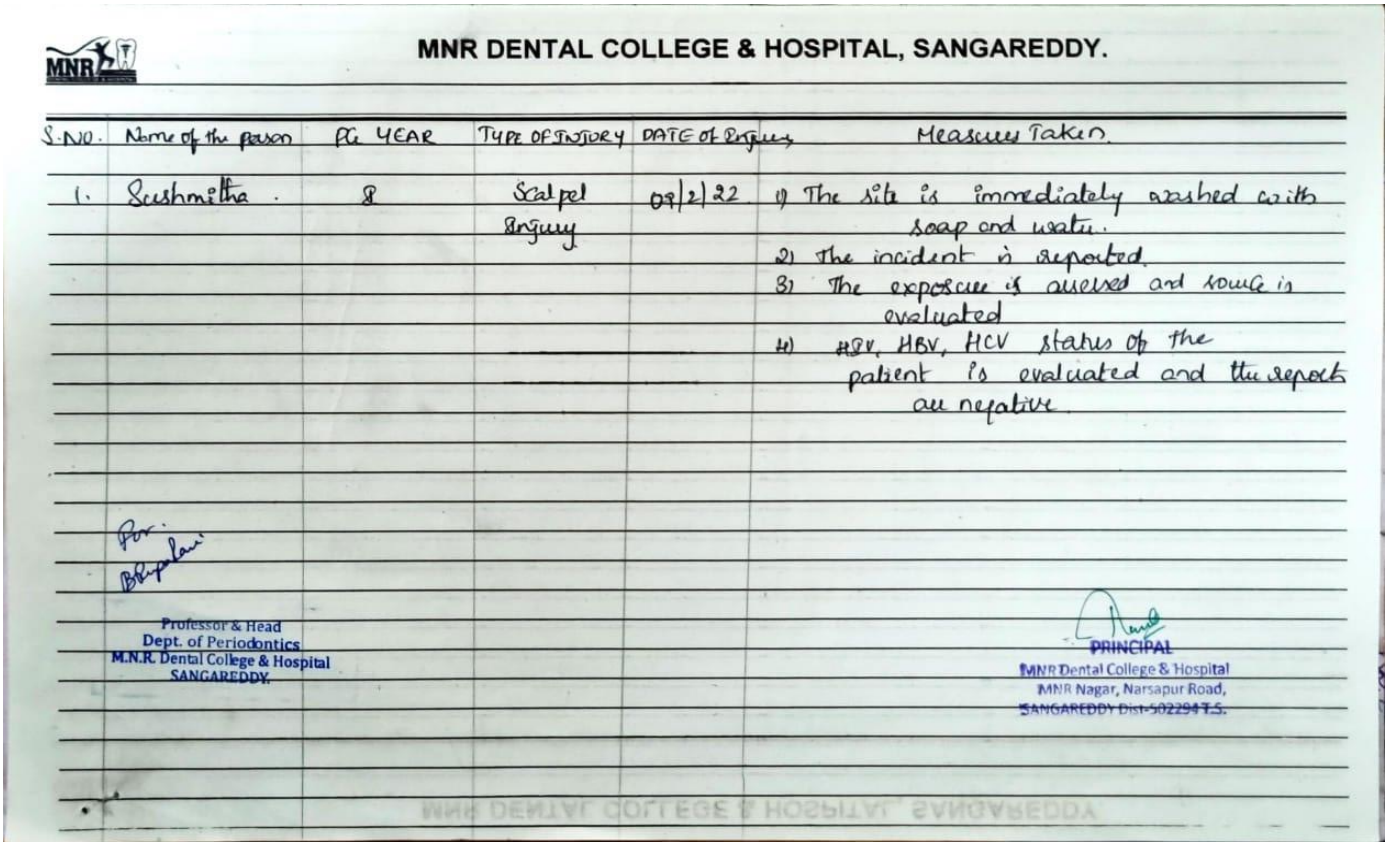 MNR
MNR DENTAL COLLEGE & HOSPITAL, SANGAREDDY.
S.NO. Name of the person PG YEAR TYPE OF INJURY DATE of Injury Measures Taken.
1. Sushmitha. Scalpel 09/2/22 1) The site is immediately washed with
Injury soap and water.
2) The incident is reported.
3) The exposure is assessed and source is
evaluated
4) HIV, HBV, HCV status of the
patient is evaluated and the reports
are negative.
For.
Professor & Head
Dept. of Periodontics
M.N.R. Dental College & Hospital
SANGAREDDY.
PRINCIPAL
MNR Dental College & Hospital
MNR Nagar, Narsapur Road,
SANGAREDDY Dist-502294 T.S.
MNR DENTAL COLLEGE & HOSPITAL, SANGAREDDY